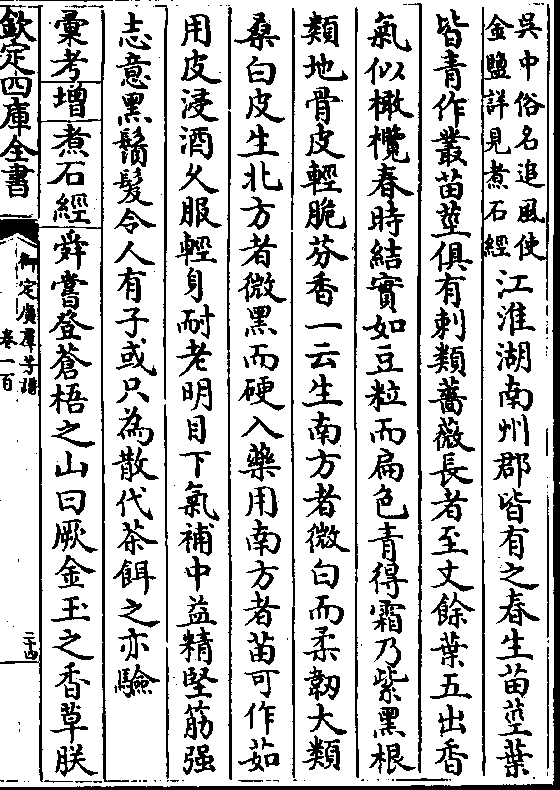 吳中俗名追風使
金鹽詳見煮石經
江淮湖南州郡皆有之春生苗莖葉
皆青作叢苗莖俱有刺類薔薇長者至丈餘葉五出香
氣似橄欖春時結實如豆粒而扁色青得霜乃紫黑根
類地骨皮輕脆芬香一云生南方者微白而柔韌大類
桑白皮生北方者微黑而硬入藥用南方者苗可作茹
用皮浸酒久服輕身耐老明目下氣補中益精堅筋强
志意黑鬚髮令人有子或只為散代茶餌之亦驗
彙考增煮石經舜嘗登蒼梧之山曰厥金玉之香草朕
欽定四庫全書
御定廣羣芳譜
卷一百
二十四